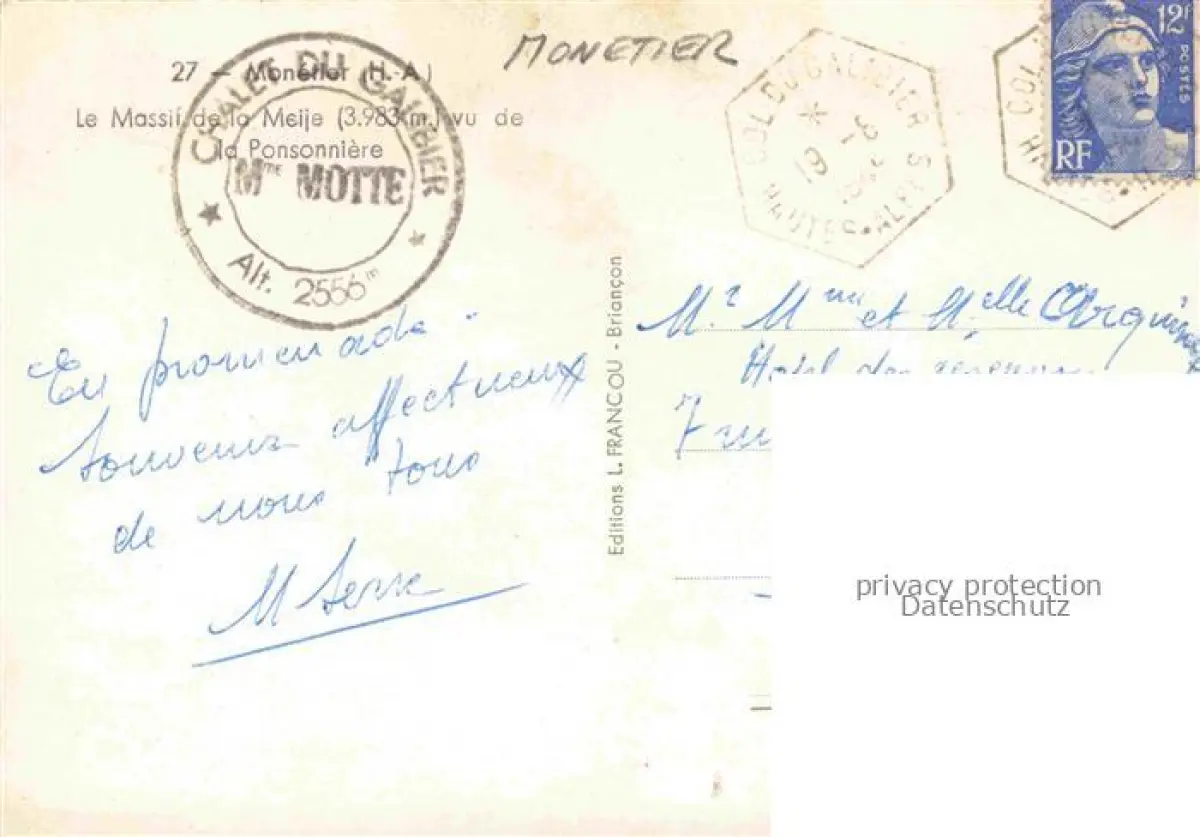 MONETIER
27 - Monêtier (H.-A.)
Le Massif de la Meije (3.983 m.) vu de
la Ponsonnière
★ CHALET DU GALIBIER ★
Mme MOTTE
Alt. 2556m
COL DU GALIBIER
* 8
19
HAUTES-ALPES
COL
12f
POSTES
RF
En promenade.
Souvenirs affectueux
de nous tous
M Serre
Editions L. FRANCOU - Briançon
Mr Mme et Melle
Hotel des
7
privacy protection
Datenschutz